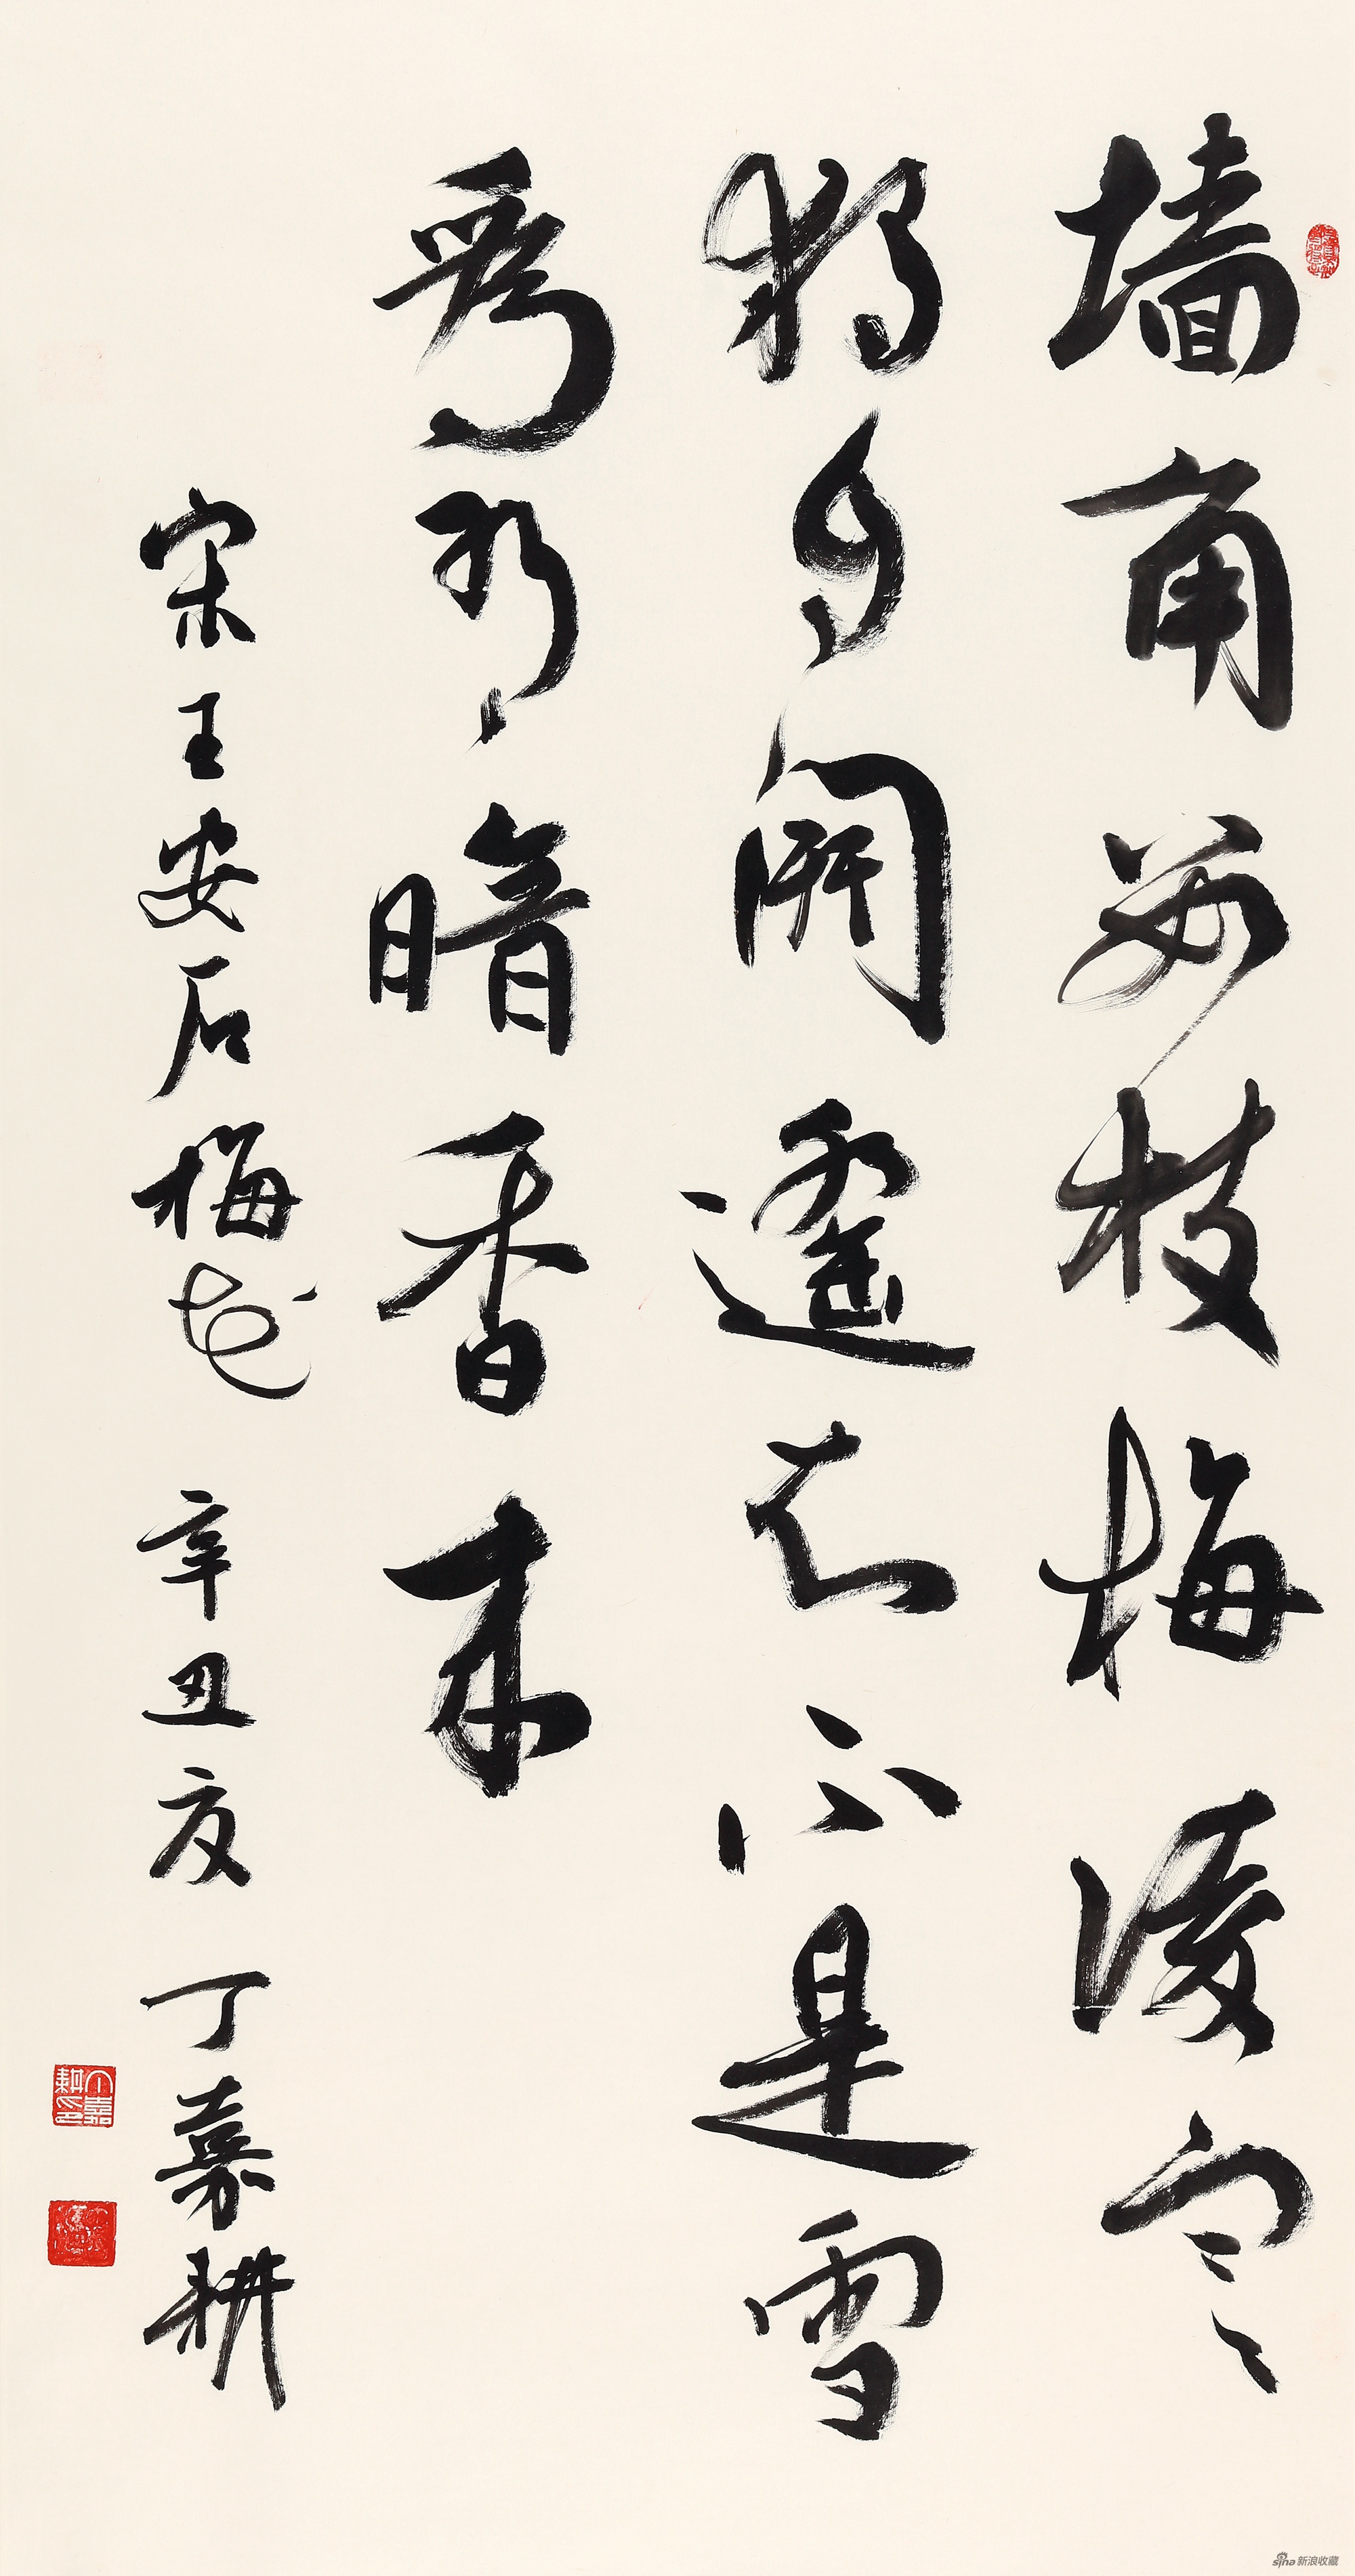 墙角数枝梅凌寒
独自開遥知不是雪
爲有暗香来
宋王安石梅花 辛丑夏 丁嘉耕
丁嘉耕印
sina新浪收藏